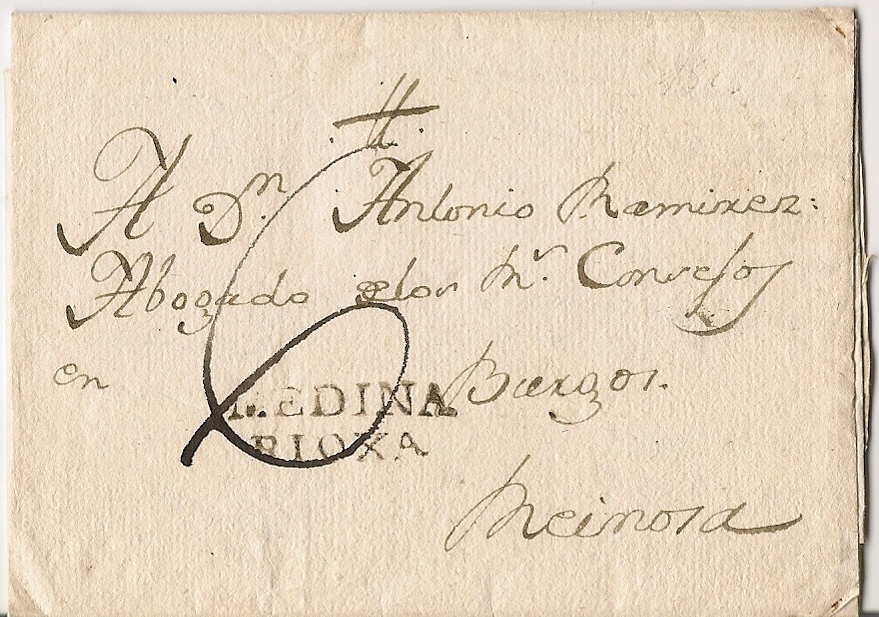 A Dn. Antonio Ramirez:
Abogado delos Rs. Consejos
en Burgos.
MEDINA
RIOXA
6
Reinosa